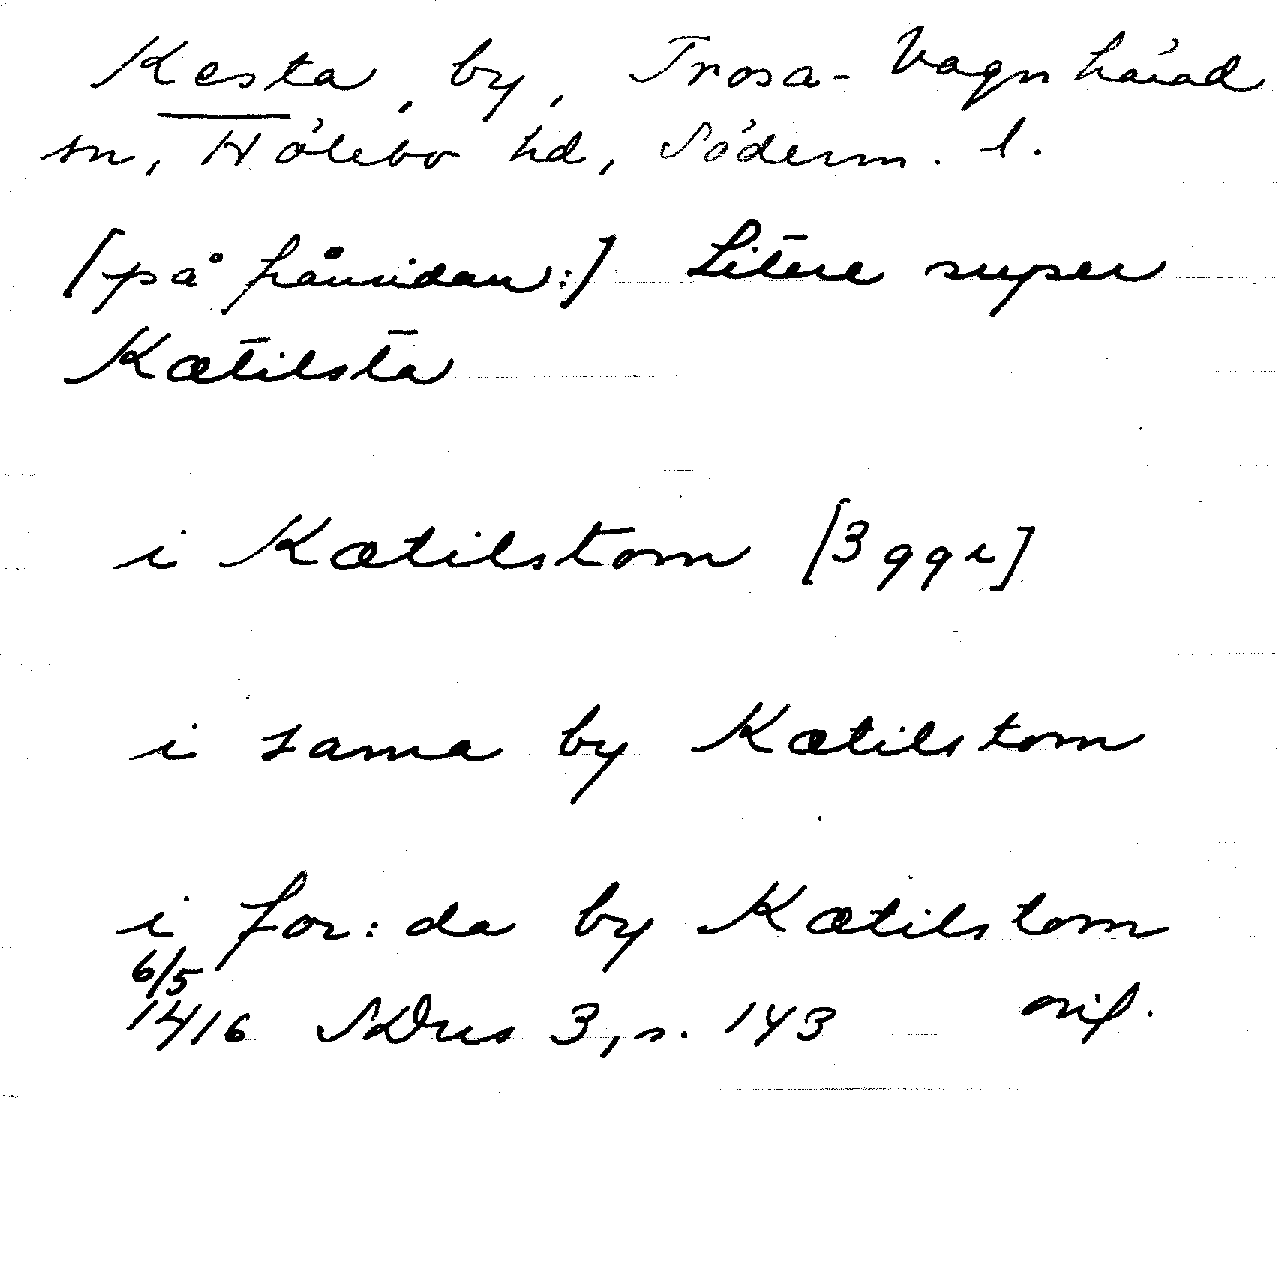 Kesta, by, Trosa-Vagnhärad
sn, Hölebo hd, Söderm. l.
[på frånsidan:] Litēre super
Kætīlstā
i Kætilstom [3 ggr]
i sama by Kætilstom
i for:da by Kætilstom
6/5
1416 SDns 3, s. 143 orig.